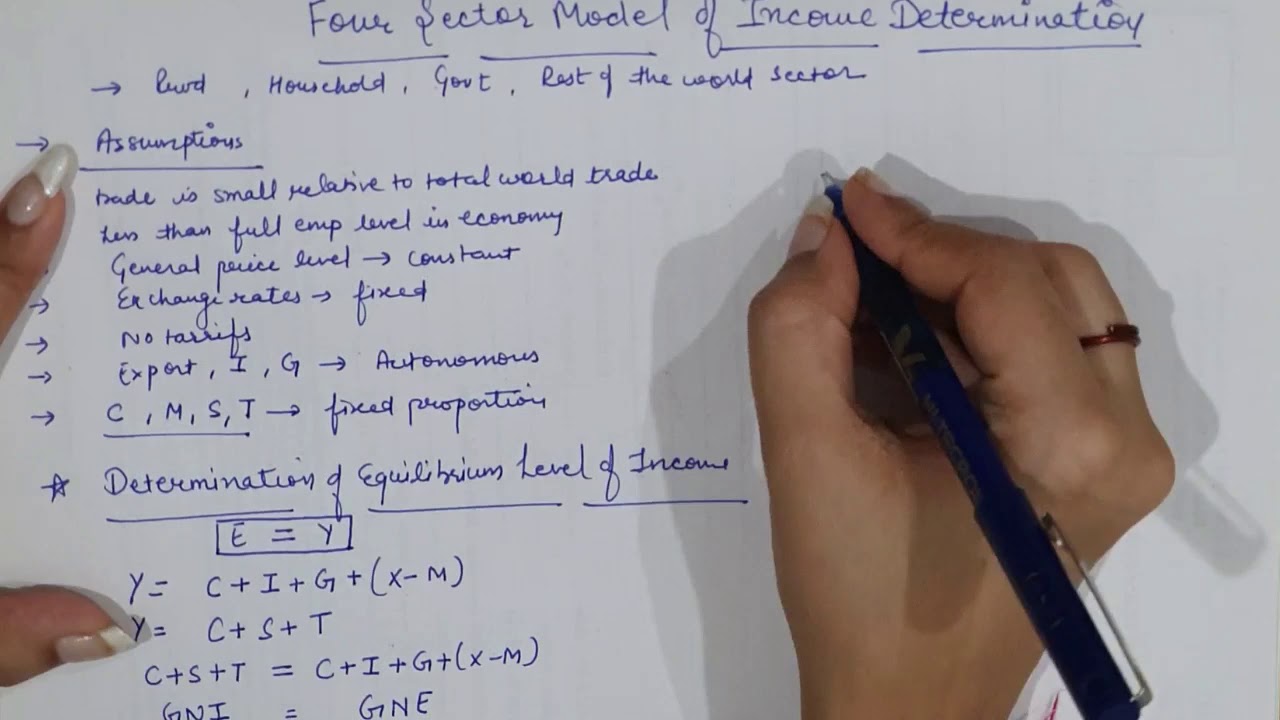 Four Sector Model of Income Determination
→ , Household, Govt, Rest of the world sector
→ Assumptions
trade is small relative to total world trade
Less than full emp level in economy
General price level → constant
→ Exchange rates → fixed
→ No tarrifs
→ Export, I, G → Autonomous
→ C, M, S, T → fixed proportion
☆ Determination of Equilibrium Level of Income
E = Y
Y = C + I + G + (X-M)
Y = C + S + T
C+S+T = C+I+G+(X-M)
GNI = GNE